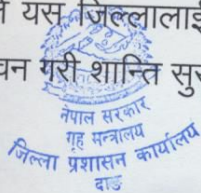 यस जिल्लालाई
गरी शान्ति
नेपाल सरकार
गृह मन्त्रालय
जिल्ला प्रशासन कार्यालय
दाङ